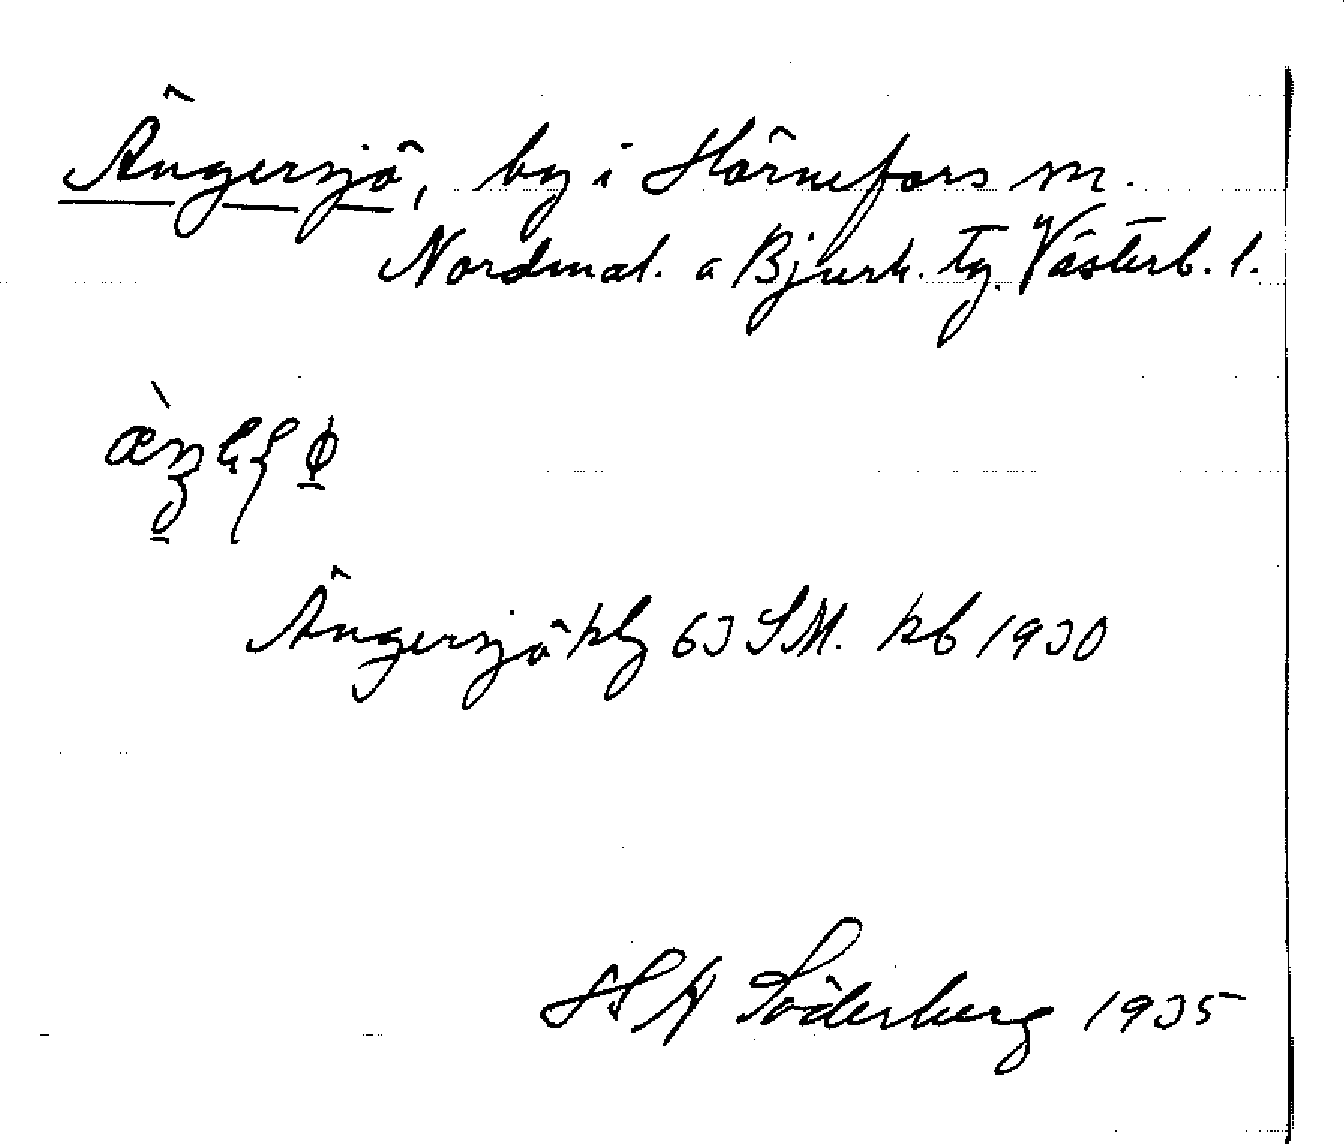 Ängersjö, by i Hörnefors sn.
Nordmal. o Bjurh. tg. Västerb. l.
Ängersjö klg 63 SM. kb 1930
H A Söderberg 1935